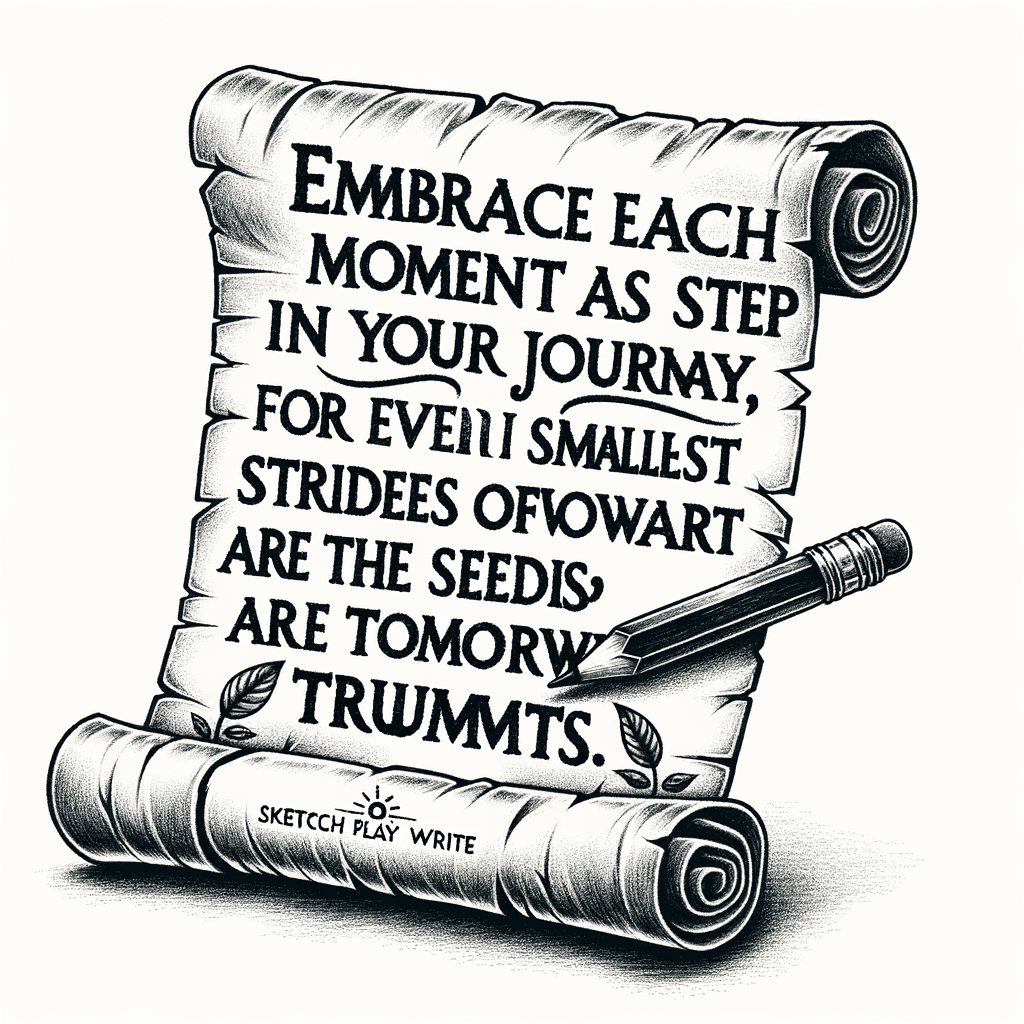 EMMBRACE EACH
MOMENT AS STEP
IN YOUR JOURNAY,
FOR SMALLEST
STRIDEES OFVOWART
ARE THE SEEDIS,
ARE TOMORW
TRUUMMTS.
SKETCCH PLAY WRITE